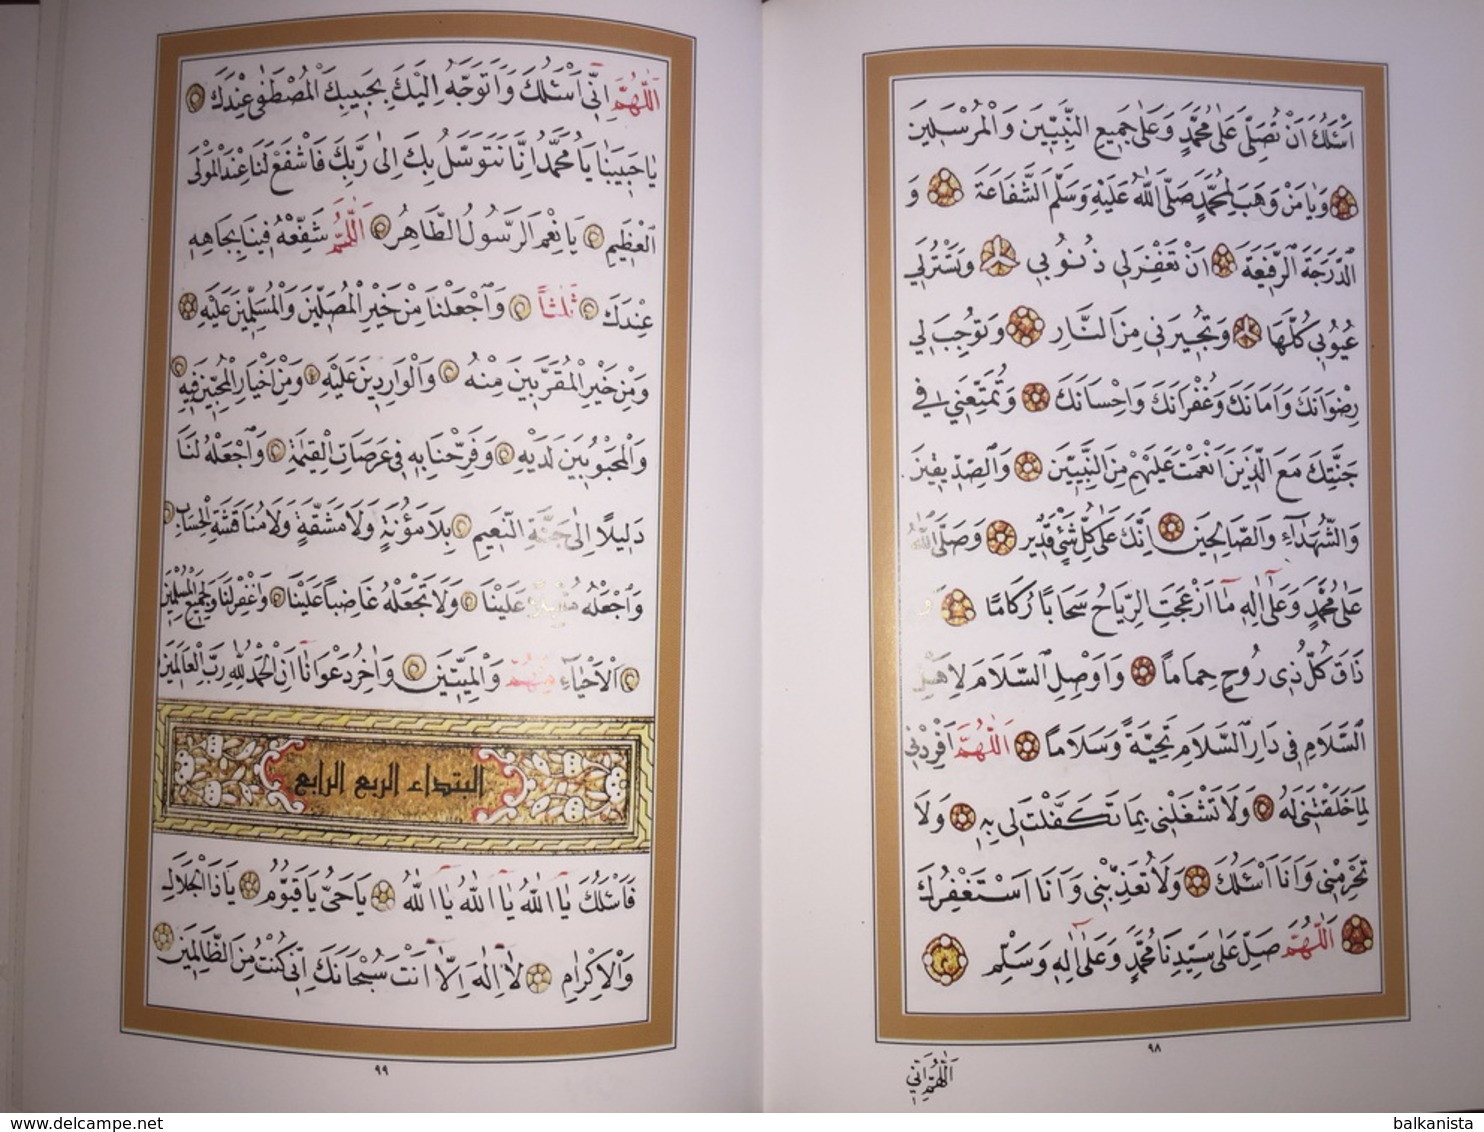 اَسْئَلُكَ اَنْ تُصَلِّىَ عَلٰى مُحَمَّدٍ وَعَلٰى جَمِيعِ النَّبِيِّينَ وَالْمُرْسَلِينَ
وَيَا مَنْ وَهَبَ لِمُحَمَّدٍ صَلَّى اللّٰهُ عَلَيْهِ وَسَلَّمَ الشَّفَاعَةَ وَ
الدَّرَجَةَ الرَّفِيعَةَ اَنْ تَغْفِرَ لِى ذُنُوبِى وَتَسْتُرَ لِى
عُيُوبِى كُلَّهَا وَتُجِيرَنِى مِنَ النَّارِ وَتُوجِبَ لِى
رِضْوَانَكَ وَاَمَانَكَ وَغُفْرَانَكَ وَاِحْسَانَكَ وَتُمَتِّعَنِى فِى
جَنَّتِكَ مَعَ الَّذِينَ اَنْعَمْتَ عَلَيْهِمْ مِنَ النَّبِيِّينَ وَالصِّدِّيقِينَ
وَالشُّهَدَآءِ وَالصَّالِحِينَ اِنَّكَ عَلٰى كُلِّ شَىْءٍ قَدِيرٌ وَصَلَّى اللّٰهُ
عَلٰى مُحَمَّدٍ وَعَلٰٓى اٰلِهِ مَٓا اَزْعَجَتِ الرِّيَاحُ سَحَابًا رُكَامًا وَ
ذَاقَ كُلُّ ذِى رُوحٍ حِمَامًا وَاَوْصِلِ السَّلَامَ لِاَهْلِ
السَّلَامِ فِى دَارِ السَّلَامِ تَحِيَّةً وَسَلَامًا اَللّٰهُمَّ اَفْرِدْنِى
لِمَا خَلَقْتَنِى لَهُ وَلَا تَشْغَلْنِى بِمَا تَكَفَّلْتَ لِى بِهِ وَلَا
تَحْرِمْنِى وَاَنَا اَسْئَلُكَ وَلَا تُعَذِّبْنِى وَاَنَا اَسْتَغْفِرُكَ
اَللّٰهُمَّ صَلِّ عَلٰى سَيِّدِنَا مُحَمَّدٍ وَعَلٰٓى اٰلِهِ وَسَلِّمْ
٩٨
اَللّٰهُمَّ اِنِّى
اَللّٰهُمَّ اِنِّى اَسْئَلُكَ وَاَتَوَجَّهُ اِلَيْكَ بِحَبِيبِكَ الْمُصْطَفٰى عِنْدَكَ
يَا حَبِيبَنَا يَا مُحَمَّدُ اِنَّا نَتَوَسَّلُ بِكَ اِلٰى رَبِّكَ فَاشْفَعْ لَنَا عِنْدَ الْمَوْلَى
الْعَظِيمِ يَا نِعْمَ الرَّسُولُ الطَّاهِرُ اَللّٰهُمَّ شَفِّعْهُ فِينَا بِجَاهِهِ
عِنْدَكَ ثَلٰثًا وَاجْعَلْنَا مِنْ خَيْرِ الْمُصَلِّينَ وَالْمُسَلِّمِينَ عَلَيْهِ
وَمِنْ خَيْرِ الْمُقَرَّبِينَ مِنْهُ وَالْوَارِدِينَ عَلَيْهِ وَمِنْ اَخْيَارِ الْمُحِبِّينَ فِيهِ
وَالْمَحْبُوبِينَ لَدَيْهِ وَفَرِّحْنَا بِهِ فِى عَرَصَاتِ الْقِيٰمَةِ وَاجْعَلْهُ لَنَا
دَلِيلًا اِلٰى جَنَّةِ النَّعِيمِ بِلَا مَؤُنَةٍ وَلَا مَشَقَّةٍ وَلَا مُنَاقَشَةِ الْحِسَابِ
وَاجْعَلْهُ مُقْبِلًا عَلَيْنَا وَلَا تَجْعَلْهُ غَاضِبًا عَلَيْنَا وَاغْفِرْ لَنَا وَلِجَمِيعِ الْمُسْلِمِينَ
اَلْاَحْيَآءِ مِنْهُمْ وَالْمَيِّتِينَ وَاٰخِرُ دَعْوَانَٓا اَنِ الْحَمْدُ لِلّٰهِ رَبِّ الْعَالَمِينَ
ابتداء الربع الرابع
فَاَسْئَلُكَ يَٓا اَللّٰهُ يَٓا اَللّٰهُ يَٓا اَللّٰهُ يَا حَىُّ يَا قَيُّومُ يَا ذَا الْجَلَالِ
وَالْاِكْرَامِ لَٓا اِلٰهَ اِلَّٓا اَنْتَ سُبْحَانَكَ اِنِّى كُنْتُ مِنَ الظَّالِمِينَ
٩٩
www.delcampe.net
balkanista